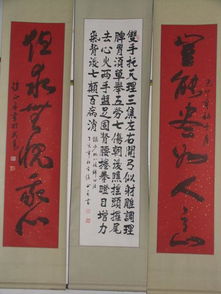 豈能盡如人意
雙手托天理三焦左右開弓似射雕調理
脾胃須單舉五勞七傷朝後瞧搖頭擺尾
去心火兩手盤足固腎腰拳目增力
氣背後七顛百病消
但求無愧我心